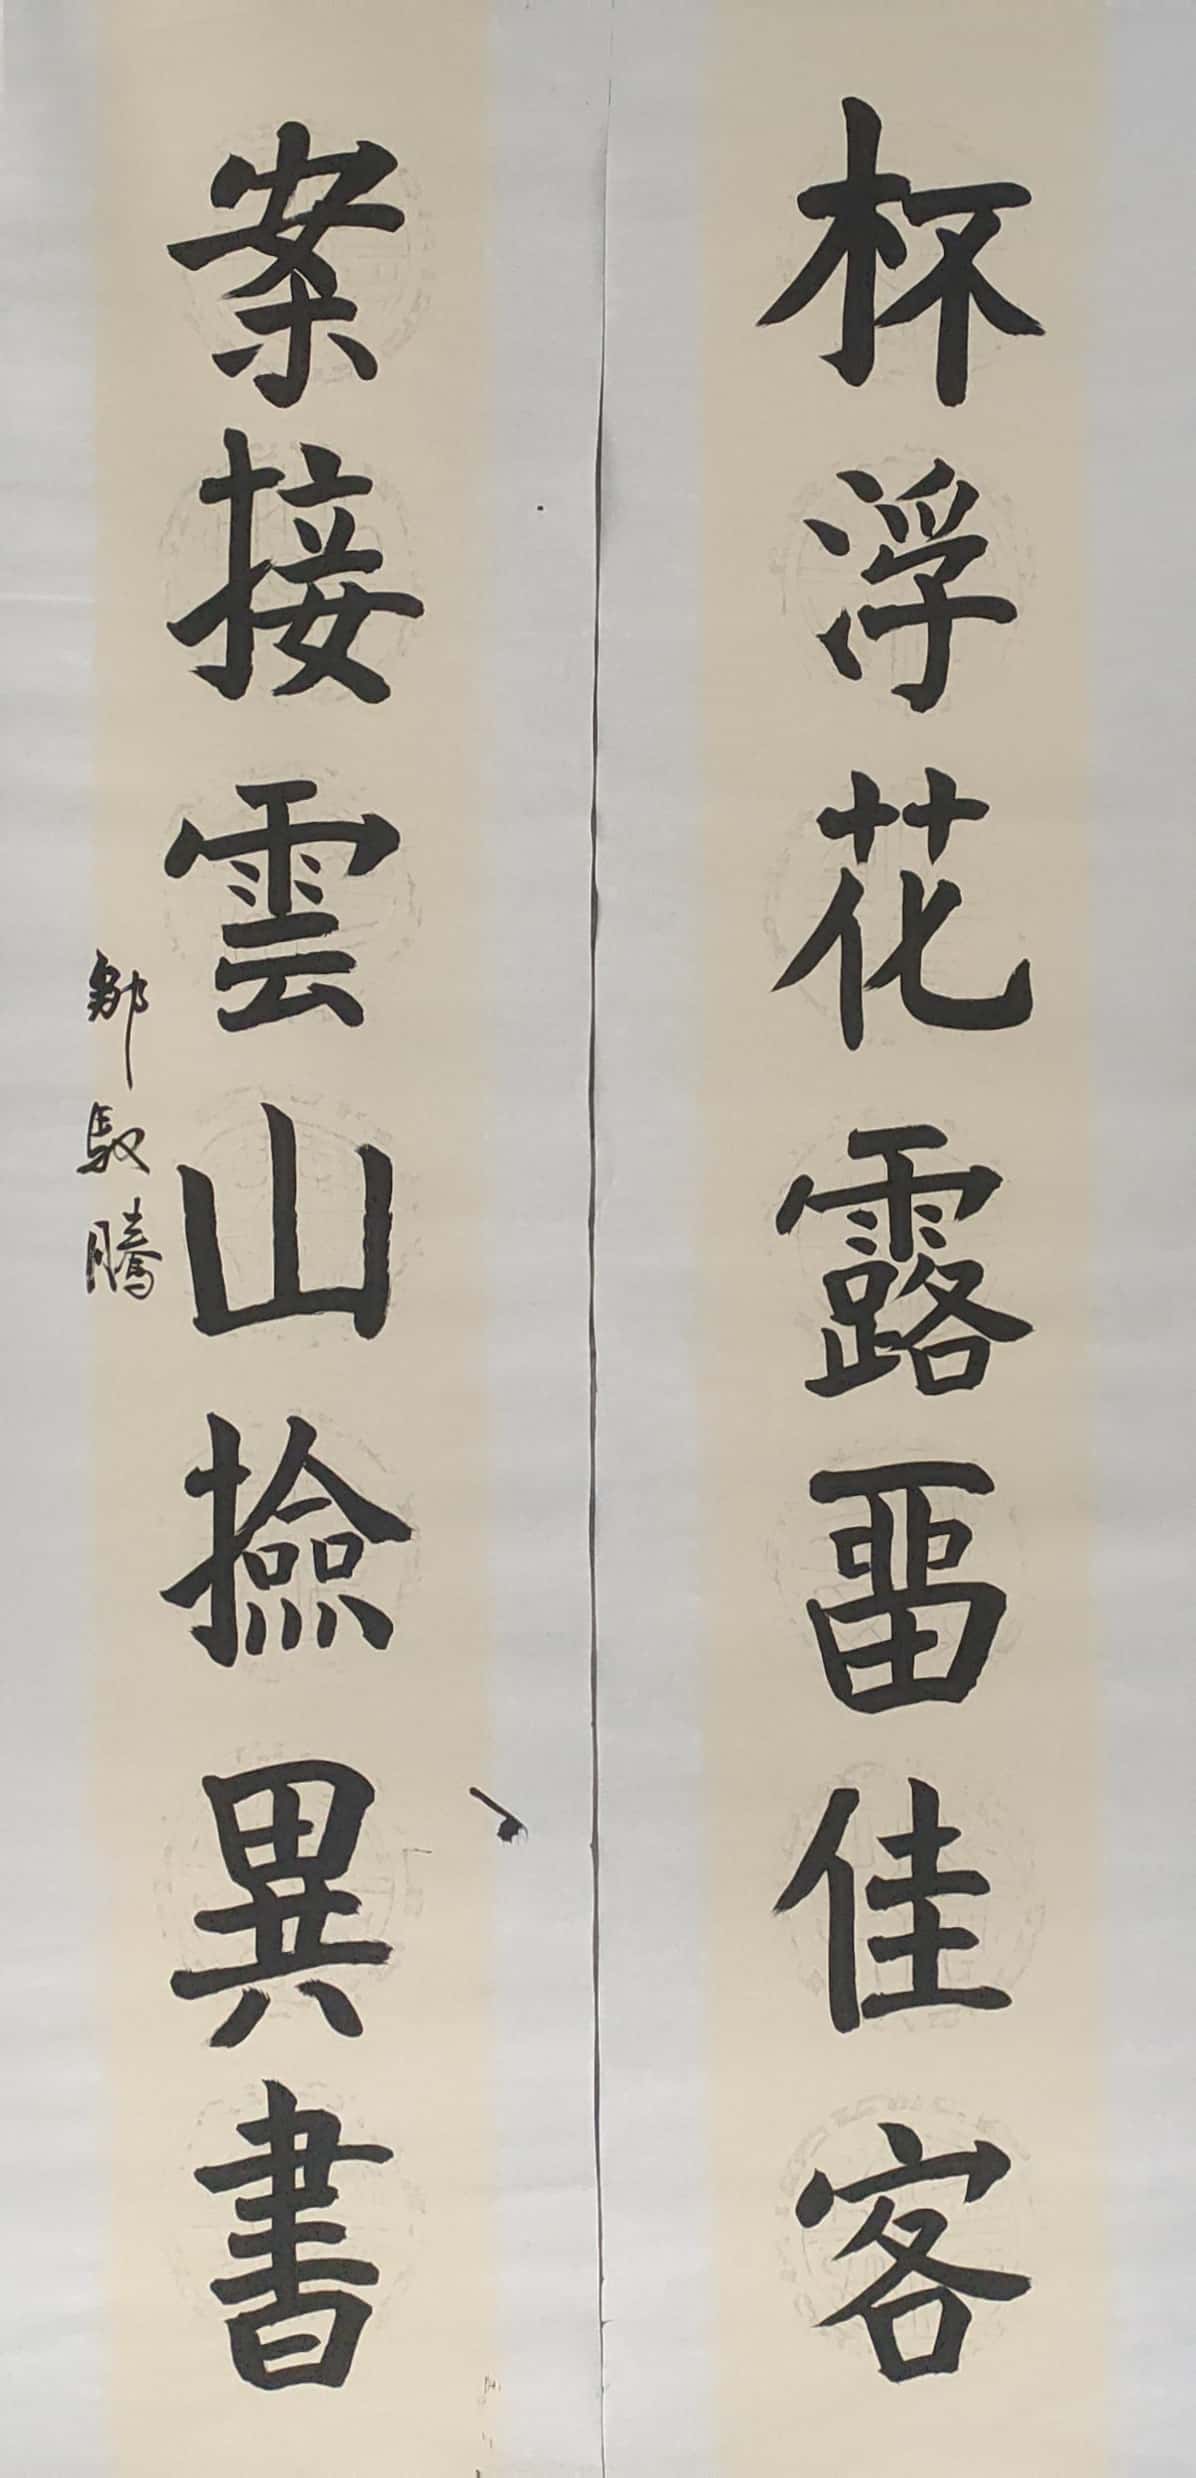 杯浮花露畱佳客
案接雲山撿異書
鄒馭騰